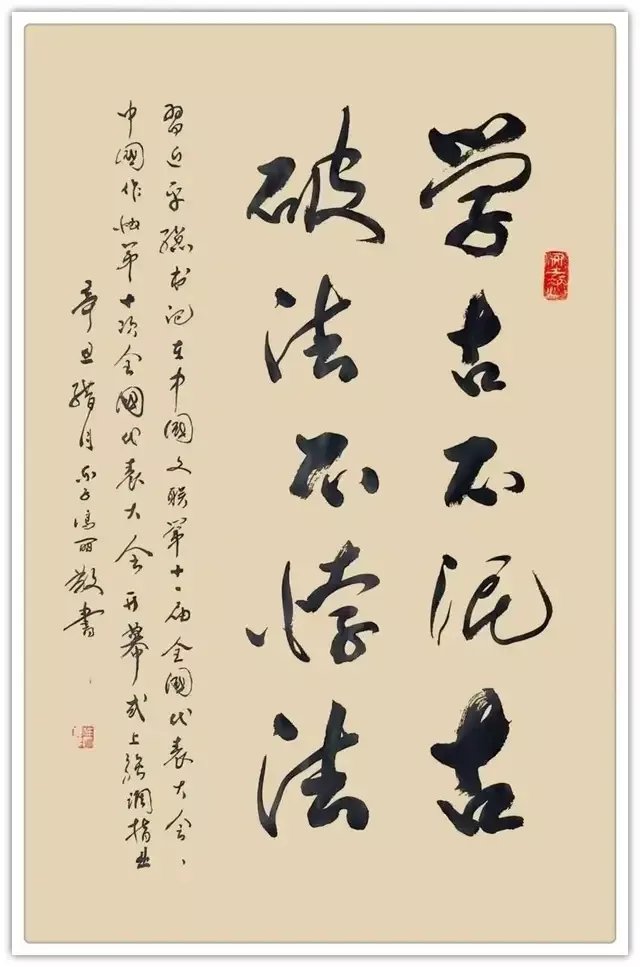 学古不泥古
破法不悖法
習近平總书记在中國文联第十一届全國代表大会、
中國作协第十次全國代表大会开幕式上強調指出
辛丑腊月
散書